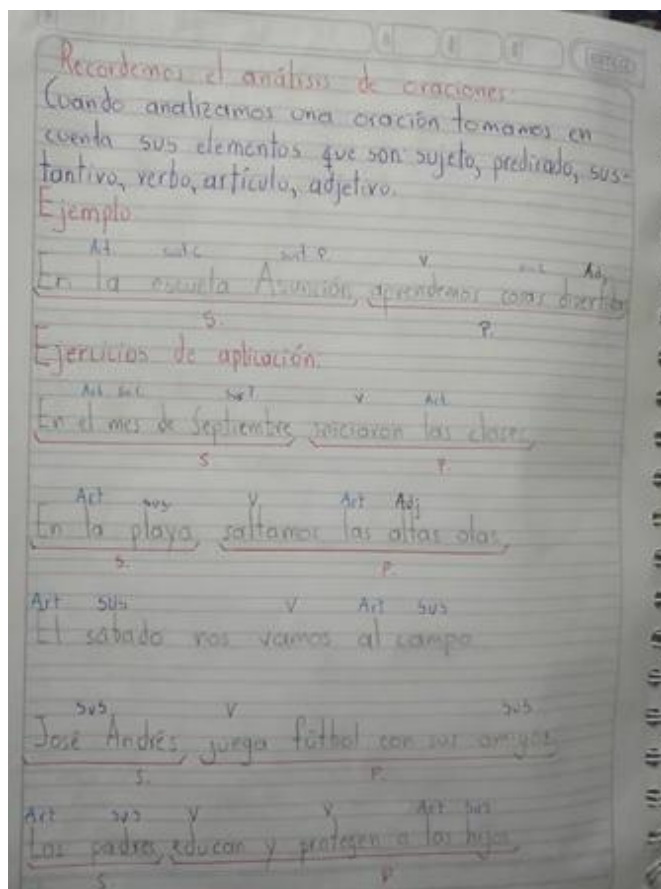 Recordemos el análisis de oraciones.
Cuando analizamos una oración tomamos en
cuenta sus elementos que son: sujeto, predicado, sus-
tantivo, verbo, artículo, adjetivo.
Ejemplo
Art. sust C. sust P V sust C Adj
En la escuela Asunción, aprendemos cosas divertidas
S. P.
Ejercicios de aplicación.
Art. sust C. sust P V Art.
En el mes de Septiembre, iniciaron las clases,
S P.
Art sus V Art Adj
En la playa, saltamos las altas olas,
S. P.
Art sus V Art sus
El sábado nos vamos al campo.
sus V sus
José Andrés, juega fútbol con sus amigos
S. P.
Art sus V V Art sus
Los padres, educan y protegen a los hijos,
S. P